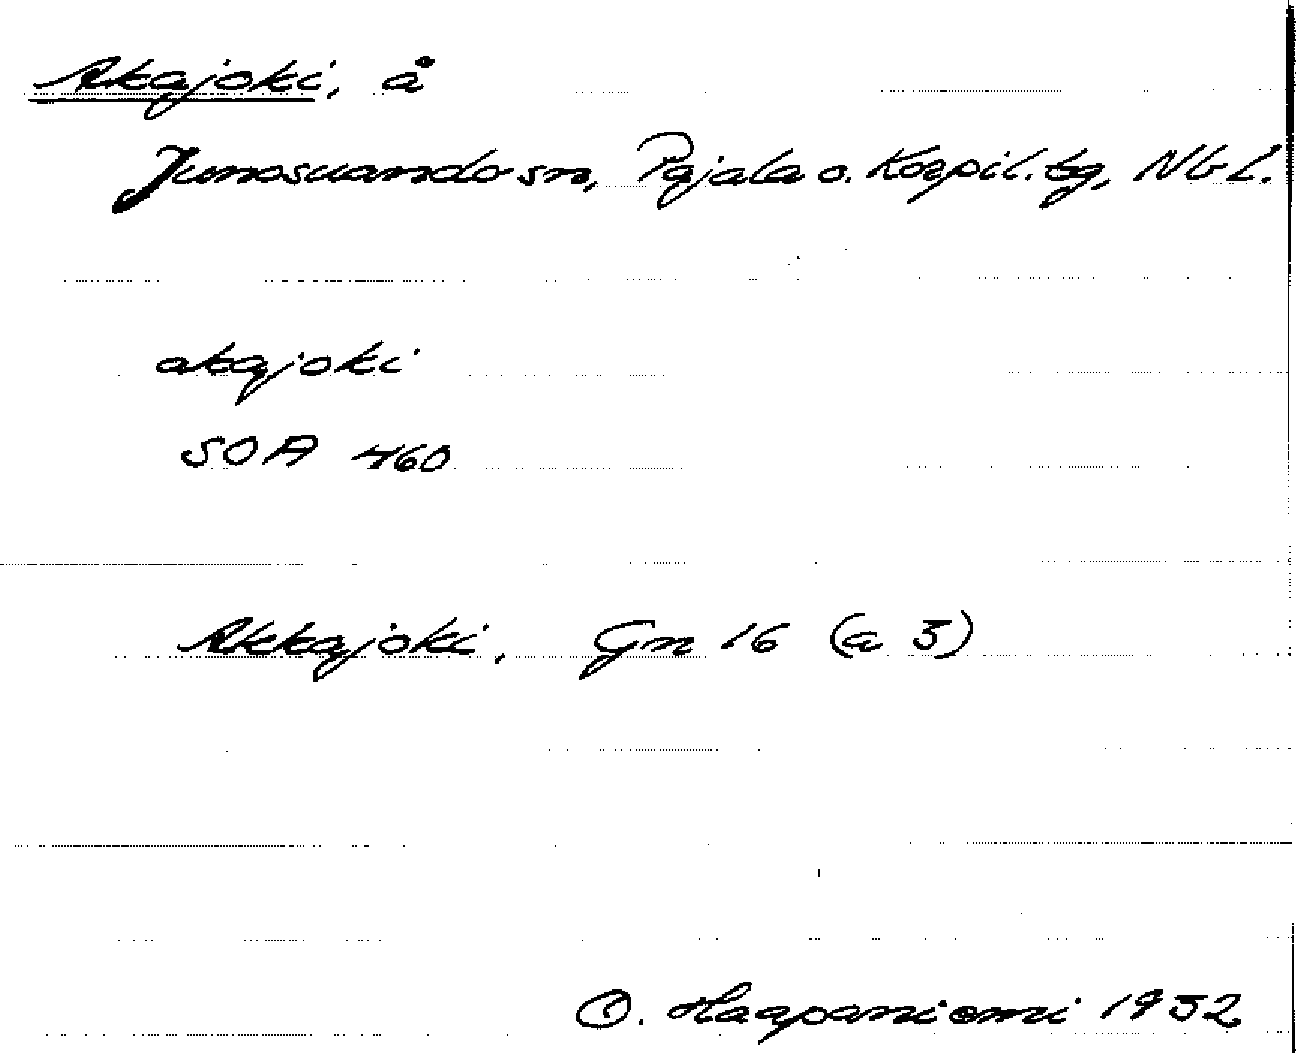 Akajoki, å
Junosuando sn, Pajala o. Korpil. tg, Nb L.
akajoki
SOA 460
Akkajoki, Gn 16 (a 3)
O. Haapaniemi 1932